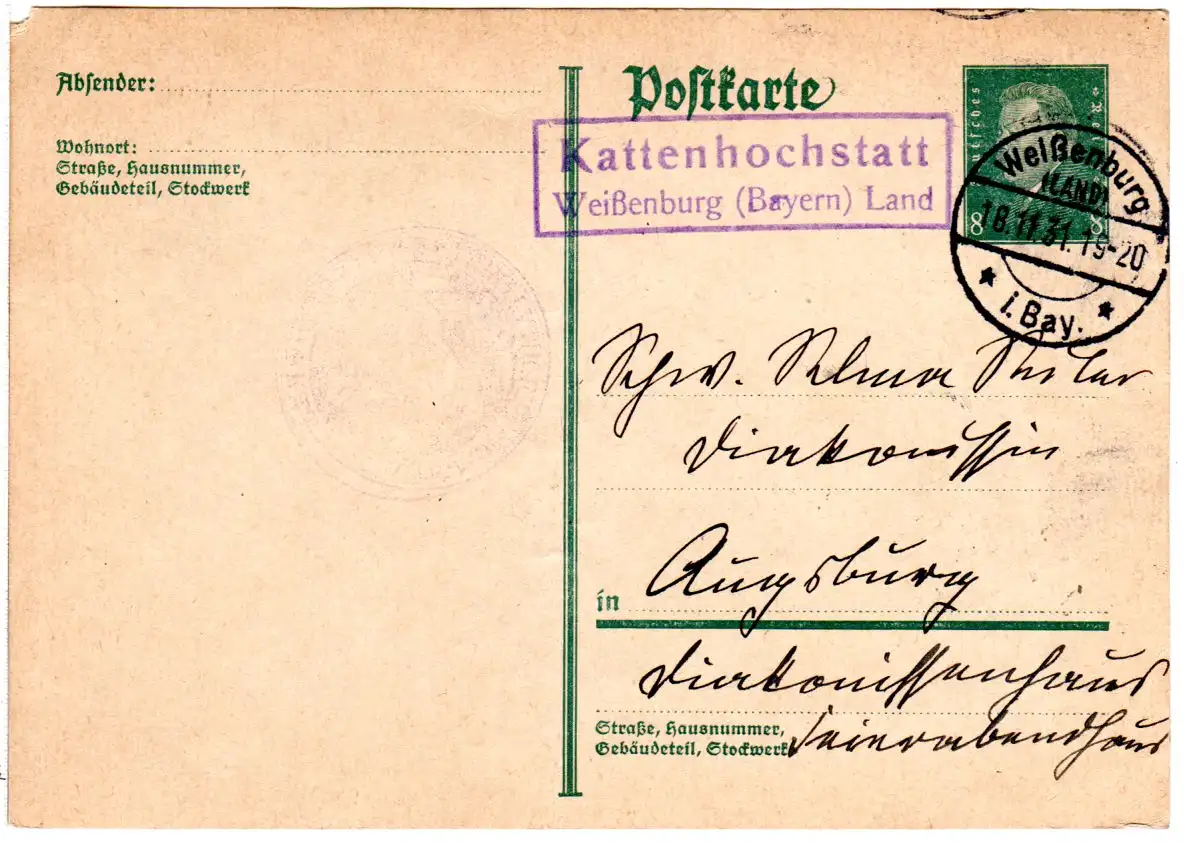 Absender:
Wohnort:
Straße, Hausnummer,
Gebäudeteil, Stockwerk
Postkarte
Deutsches
8 8
Kattenhochstatt
Weißenburg (Bayern) Land
Weißenburg
(LAND)
18.11.31.19-20
* i. Bay. *
Schw. Selma
Diakonissin
in Augsburg
Diakonissenhaus
Straße, Hausnummer,
Gebäudeteil, Stockwerk
Feierabendhaus